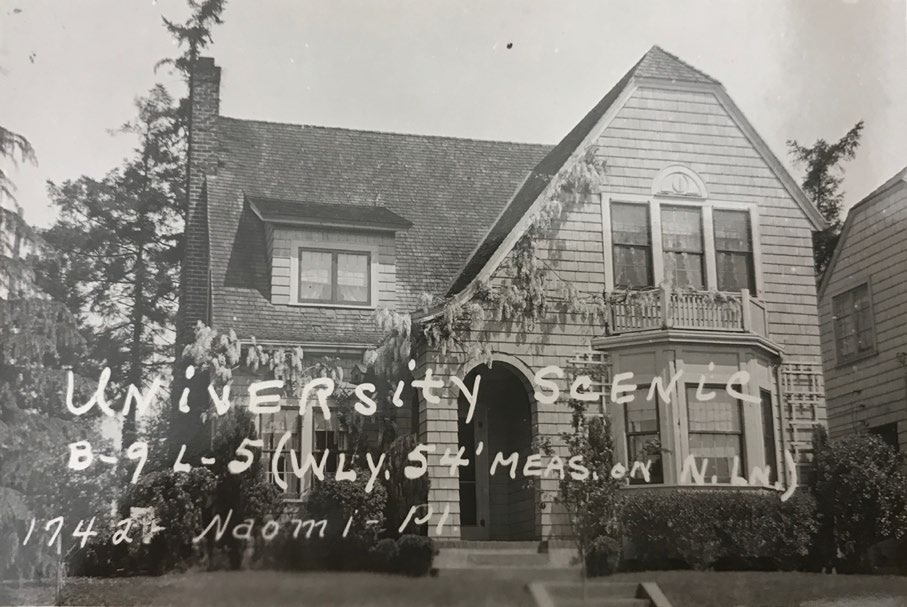 University Scenic
B-9 L-5 (Wly. 54' meas. on N. Ln.)
1742- Naomi- Pl